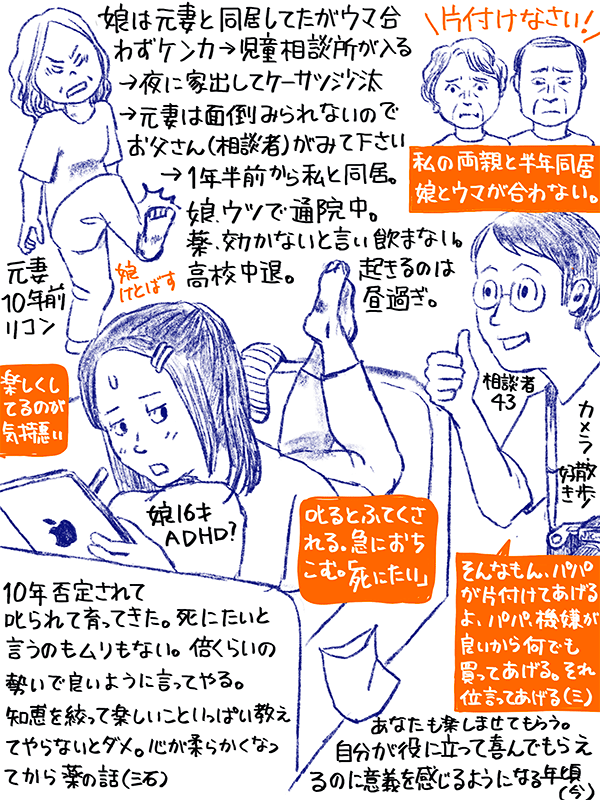 娘は元妻と同居してたがウマ合
わずケンカ→児童相談所が入る
→夜に家出してケーサツ沙汰
→元妻は面倒みられないので
お父さん(相談者)がみて下さい
→1年半前から私と同居。
娘、ウツで通院中。
薬、効かないと言い飲まない。
高校中退。
起きるのは
昼過ぎ。
片付けなさい!
私の両親と半年同居
娘とウマが合わない。
元妻
10年前
リコン
娘
けとばす
相談者
43
カメラ・散歩
好き
楽しくし
てるのが
気持悪い
娘16才
ADHD?
叱るとふてくさ
れる。急におち
こむ。「死にたい」
そんなもん、パパ
が片付けてあげる
よ、パパ、機嫌が
良いから何でも
買ってあげる。それ
位言ってあげる(三)
10年否定されて
叱られて育ってきた。死にたいと
言うのもムリもない。倍くらいの
勢いで良いように言ってやる。
知恵を絞って楽しいこといっぱい教え
てやらないとダメ。心が柔らかくなっ
てから薬の話(三石)
あなたも楽しませてもらう。
自分が役に立って喜んでもらえ
るのに意義を感じるようになる年頃
(今)